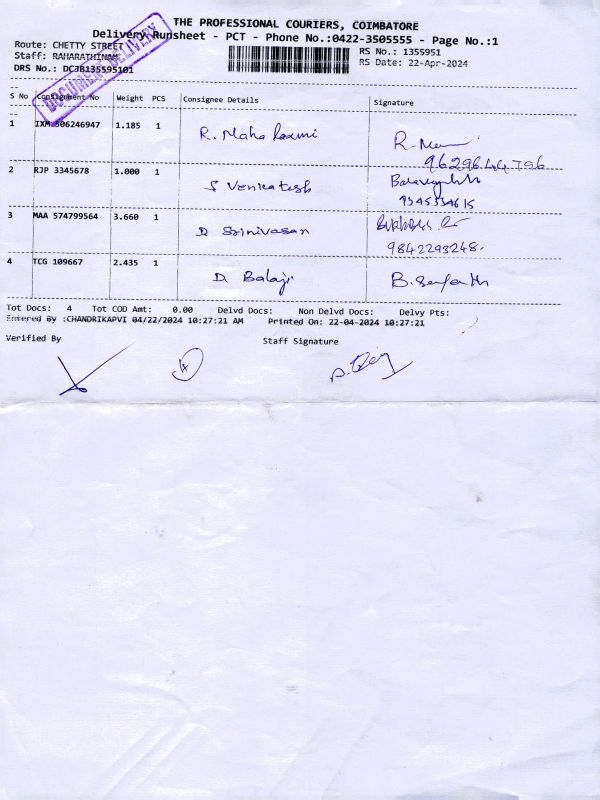 THE PROFESSIONAL COURIERS, COIMBATORE
Delivery Runsheet - PCT - Phone No.:0422-3505555 - Page No.:1
Route: CHETTY STREET
RS No.: 1355951
Staff: RAHARATHINAM
RS Date: 22-Apr-2024
DRS No.: DCJB135595101
DOCUMENT DELIVERY
S No Consignment No Weight PCS Consignee Details Signature
1 IXM 306246947 1.185 1 R. Maha laxmi R.
2 RJP 3345678 1.000 1 S Venkatesh
3 MAA 574799564 3.660 1 D Srinivasan
9842293248.
4 TCG 109667 2.435 1 D. Balaji B.
Tot Docs: 4 Tot COD Amt: 0.00 Delvd Docs: Non Delvd Docs: Delvy Pts:
Entered By :CHANDRIKAPVI 04/22/2024 10:27:21 AM Printed On: 22-04-2024 10:27:21
Verified By Staff Signature